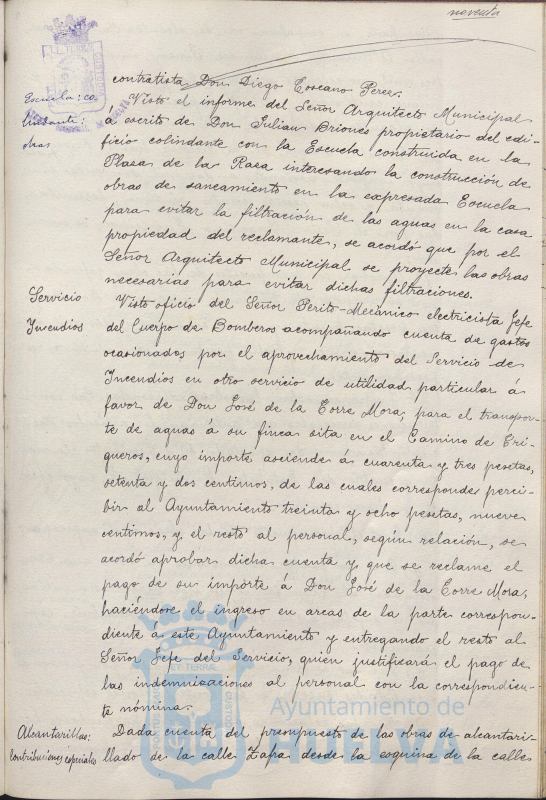 noventa
contratista Don Diego Toscano Perez.
Escuela: co
lindante:
obras
Visto el informe del Señor Arquitecto Municipal
á escrito de Don Julian Briones propietario del edi-
ficio colindante con la Escuela construida en la
Plasa de la Rasa interesando la construcción de
obras de saneamiento en la expresada Escuela
para evitar la filtración de las aguas en la casa
propiedad del reclamante, se acordó que por el
Señor Arquitecto Municipal se proyecte las obras
necesarias para evitar dichas filtraciones.
Servicio
Incendios
Visto oficio del Señor Perito-Mecánico electricista Jefe
del Cuerpo de Bomberos acompañando cuenta de gastos
ocasionados por el aprovechamiento del Servicio de
Incendios en otro servicio de utilidad particular á
favor de Don José de la Torre Mora, para el transpor-
te de aguas á su finca sita en el Camino de Tri-
gueros, cuyo importe asciende á cuarenta y tres pesetas,
setenta y dos centimos, de las cuales corresponde perci-
bir al Ayuntamiento treinta y ocho pesetas, nueve
centimos, y el resto al personal, según relación, se
acordó aprobar dicha cuenta y que se reclame el
pago de su importe á Don José de la Torre Mora,
haciéndose el ingreso en arcas de la parte correspon-
diente á este Ayuntamiento y entregando el resto al
Señor Jefe del Servicio, quien justificará el pago de
las indemnizaciones al personal con la correspondien-
te nómina.
Ayuntamiento de
Alcantarillas:
Contribuciones especiales
Dada cuenta del presupuesto de las obras de alcantari-
llado de la calle Zafa desde la esquina de la calle